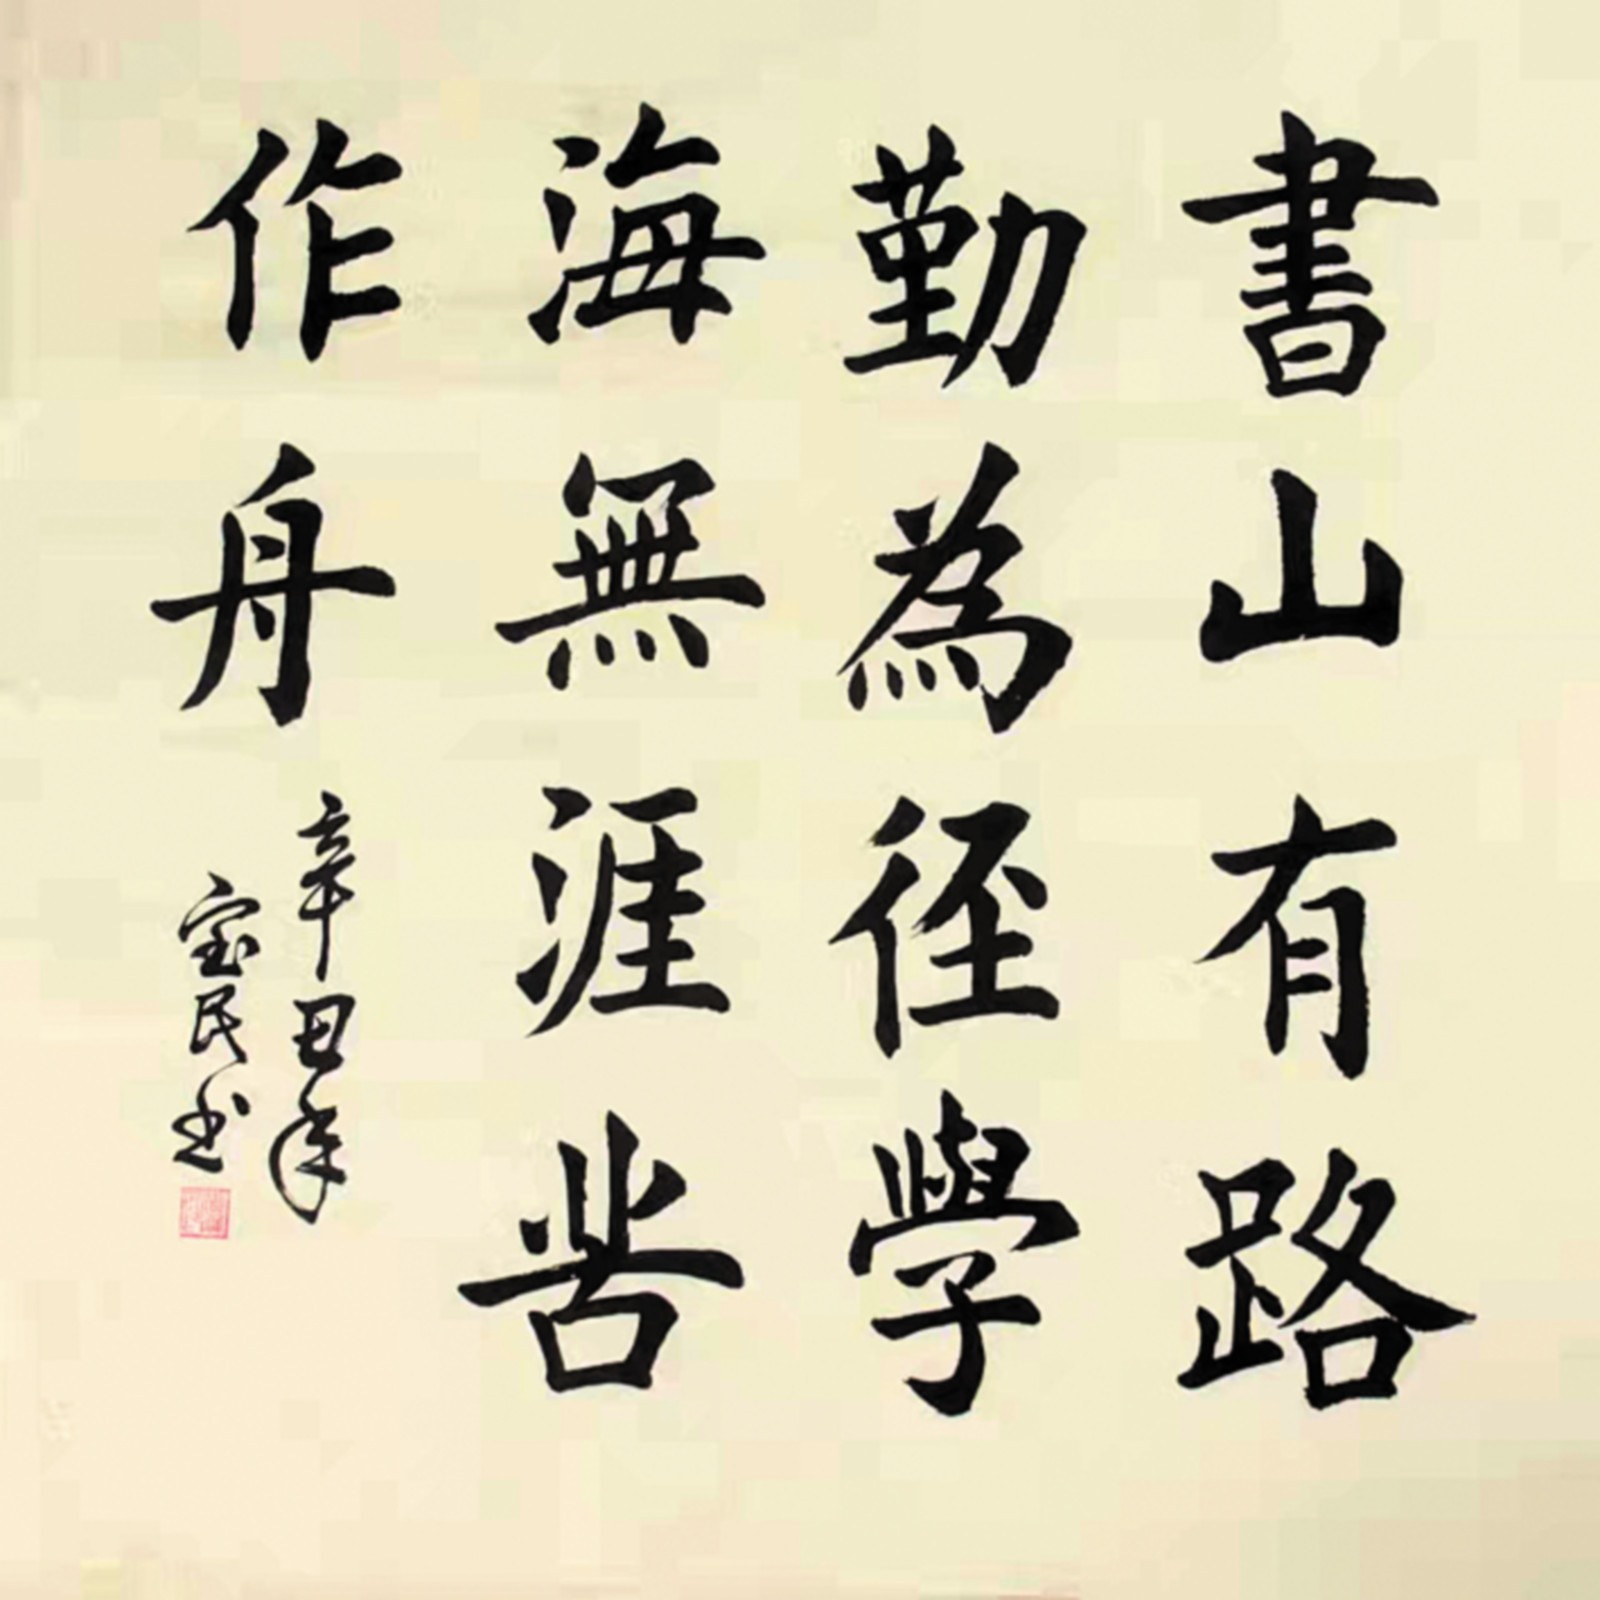 書山有路
勤為徑學
海無涯苦
作舟
辛丑年
宝民书